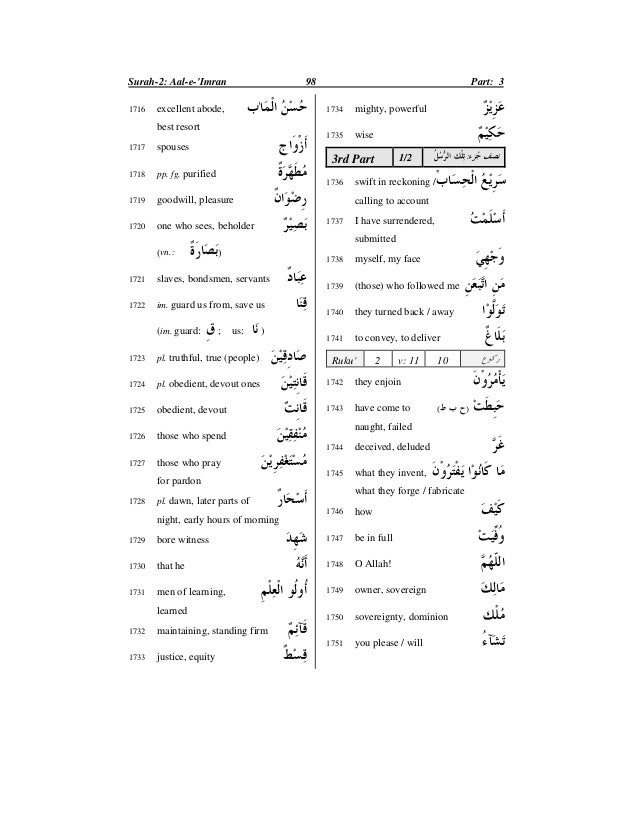 Surah-2: Aal-e-'Imran 98 Part: 3
1716 excellent abode, حُسْنُ الْمَاٰبِ
best resort
1717 spouses أَزْوَاج
1718 pp. fg. purified مُطَهَّرَةٌ
1719 goodwill, pleasure رِضْوَانٌ
1720 one who sees, beholder بَصِيْرٌ
(vn.: بَصَارَةٌ)
1721 slaves, bondsmen, servants عِبَادٌ
1722 im. guard us from, save us قِنَا
(im. guard: قِ ; us: نَا )
1723 pl. truthful, true (people) صَادِقِيْنَ
1724 pl. obedient, devout ones قَانِتِيْنَ
1725 obedient, devout قَانِتٌ
1726 those who spend مُنْفِقِيْنَ
1727 those who pray مُسْتَغْفِرِيْنَ
for pardon
1728 pl. dawn, later parts of أَسْحَارٌ
night, early hours of morning
1729 bore witness شَهِدَ
1730 that he أَنَّهُ
1731 men of learning, أُولُو الْعِلْمِ
learned
1732 maintaining, standing firm قَآئِمٌ
1733 justice, equity قِسْطٌ
1734 mighty, powerful عَزِيْزٌ
1735 wise حَكِيْمٌ
3rd Part 1/2 نصف جُزء: تِلْكَ الرُّسُلُ
1736 swift in reckoning / سَرِيْعُ الْحِسَابِ
calling to account
1737 I have surrendered, أَسْلَمْتُ
submitted
1738 myself, my face وَجْهِيَ
1739 (those) who followed me مَنِ اتَّبَعَنِ
1740 they turned back / away تَوَلَّوْا
1741 to convey, to deliver بَلَاغٌ
Ruku' 2 v: 11 10 ركوع
1742 they enjoin يَأْمُرُوْنَ
1743 have come to (ح ب ط) حَبِطَتْ
naught, failed
1744 deceived, deluded غَرَّ
1745 what they invent, مَا كَانُوْا يَفْتَرُوْنَ
what they forge / fabricate
1746 how كَيْفَ
1747 be in full وُفِّيَتْ
1748 O Allah! اللّٰهُمَّ
1749 owner, sovereign مَالِكَ
1750 sovereignty, dominion مُلْكِ
1751 you please / will تَشَآءُ